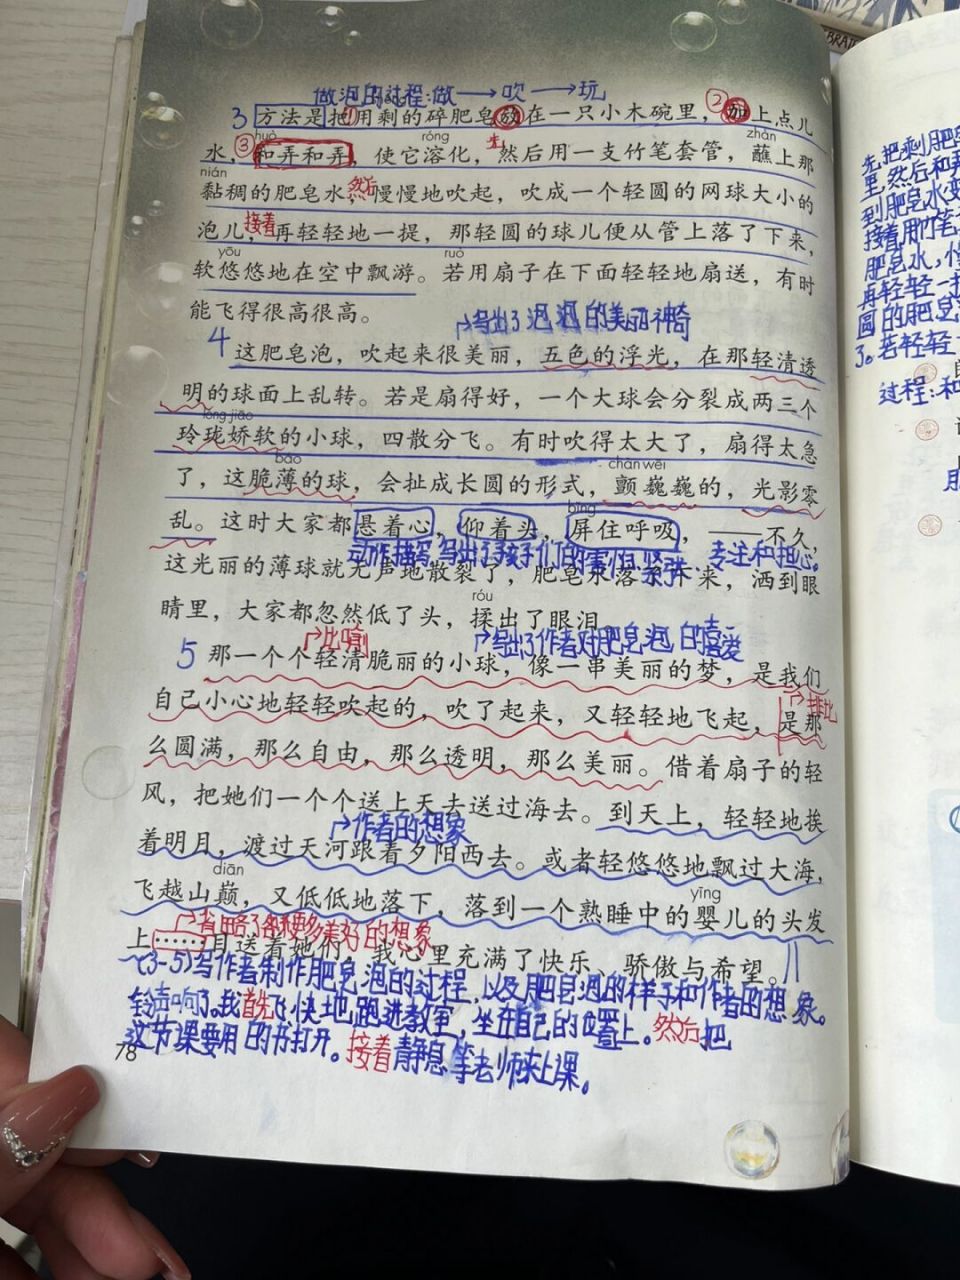 做泡的过程:做→吹→玩
3 方法是把用剩的碎肥皂放在一只小木碗里，加上点儿
② 
huò róng zhàn
③水，和弄和弄，使它溶化，然后用一支竹笔套管，蘸上那
nián
黏稠的肥皂水，然后慢慢地吹起，吹成一个轻圆的网球大小的
泡儿，接着再轻轻地一提，那轻圆的球儿便从管上落了下来，
yōu ruò
软悠悠地在空中飘游。若用扇子在下面轻轻地扇送，有时
能飞得很高很高。
写出了泡泡的美丽神奇
4 这肥皂泡，吹起来很美丽，五色的浮光，在那轻清透
明的球面上乱转。若是扇得好，一个大球会分裂成两三个
lóng jiāo
玲珑娇软的小球，四散分飞。有时吹得太大了，扇得太急
báo chàn wēi
了，这脆薄的球，会扯成长圆的形式，颤巍巍的，光影零
bǐng
乱。这时大家都悬着心，仰着头，屏住呼吸，——不久，
动作描写,写出了孩子们的害怕、紧张、专注和担心。
这光丽的薄球就无声地散裂了，肥皂水落了下来，洒到眼
róu
睛里，大家都忽然低了头，揉出了眼泪。
比喻 写出了作者对肥皂泡的喜爱
5 那一个个轻清脆丽的小球，像一串美丽的梦，是我们
自己小心地轻轻吹起的，吹了起来，又轻轻地飞起，是那
排比
么圆满，那么自由，那么透明，那么美丽。借着扇子的轻
风，把她们一个个送上天去送过海去。到天上，轻轻地挨
作者的想象
着明月，渡过天河跟着夕阳西去。或者轻悠悠地飘过大海，
diān yīng
飞越山巅，又低低地落下，落到一个熟睡中的婴儿的头发
省略了各种更多美好的想象
上……目送着她们，我心里充满了快乐、骄傲与希望。
(3-5)写作者制作肥皂泡的过程,以及肥皂泡的样子和作者的想象。
铃声响了。我首先飞快地跑进教室,坐在自己的位置上。然后把
这节课要用的书打开。接着静息等老师来上课。
78
先把剩肥皂
里,然后和弄
到肥皂水变
接着用竹笔
肥皂水,慢
再轻轻一提
圆的肥皂
了。若轻轻
过程:和